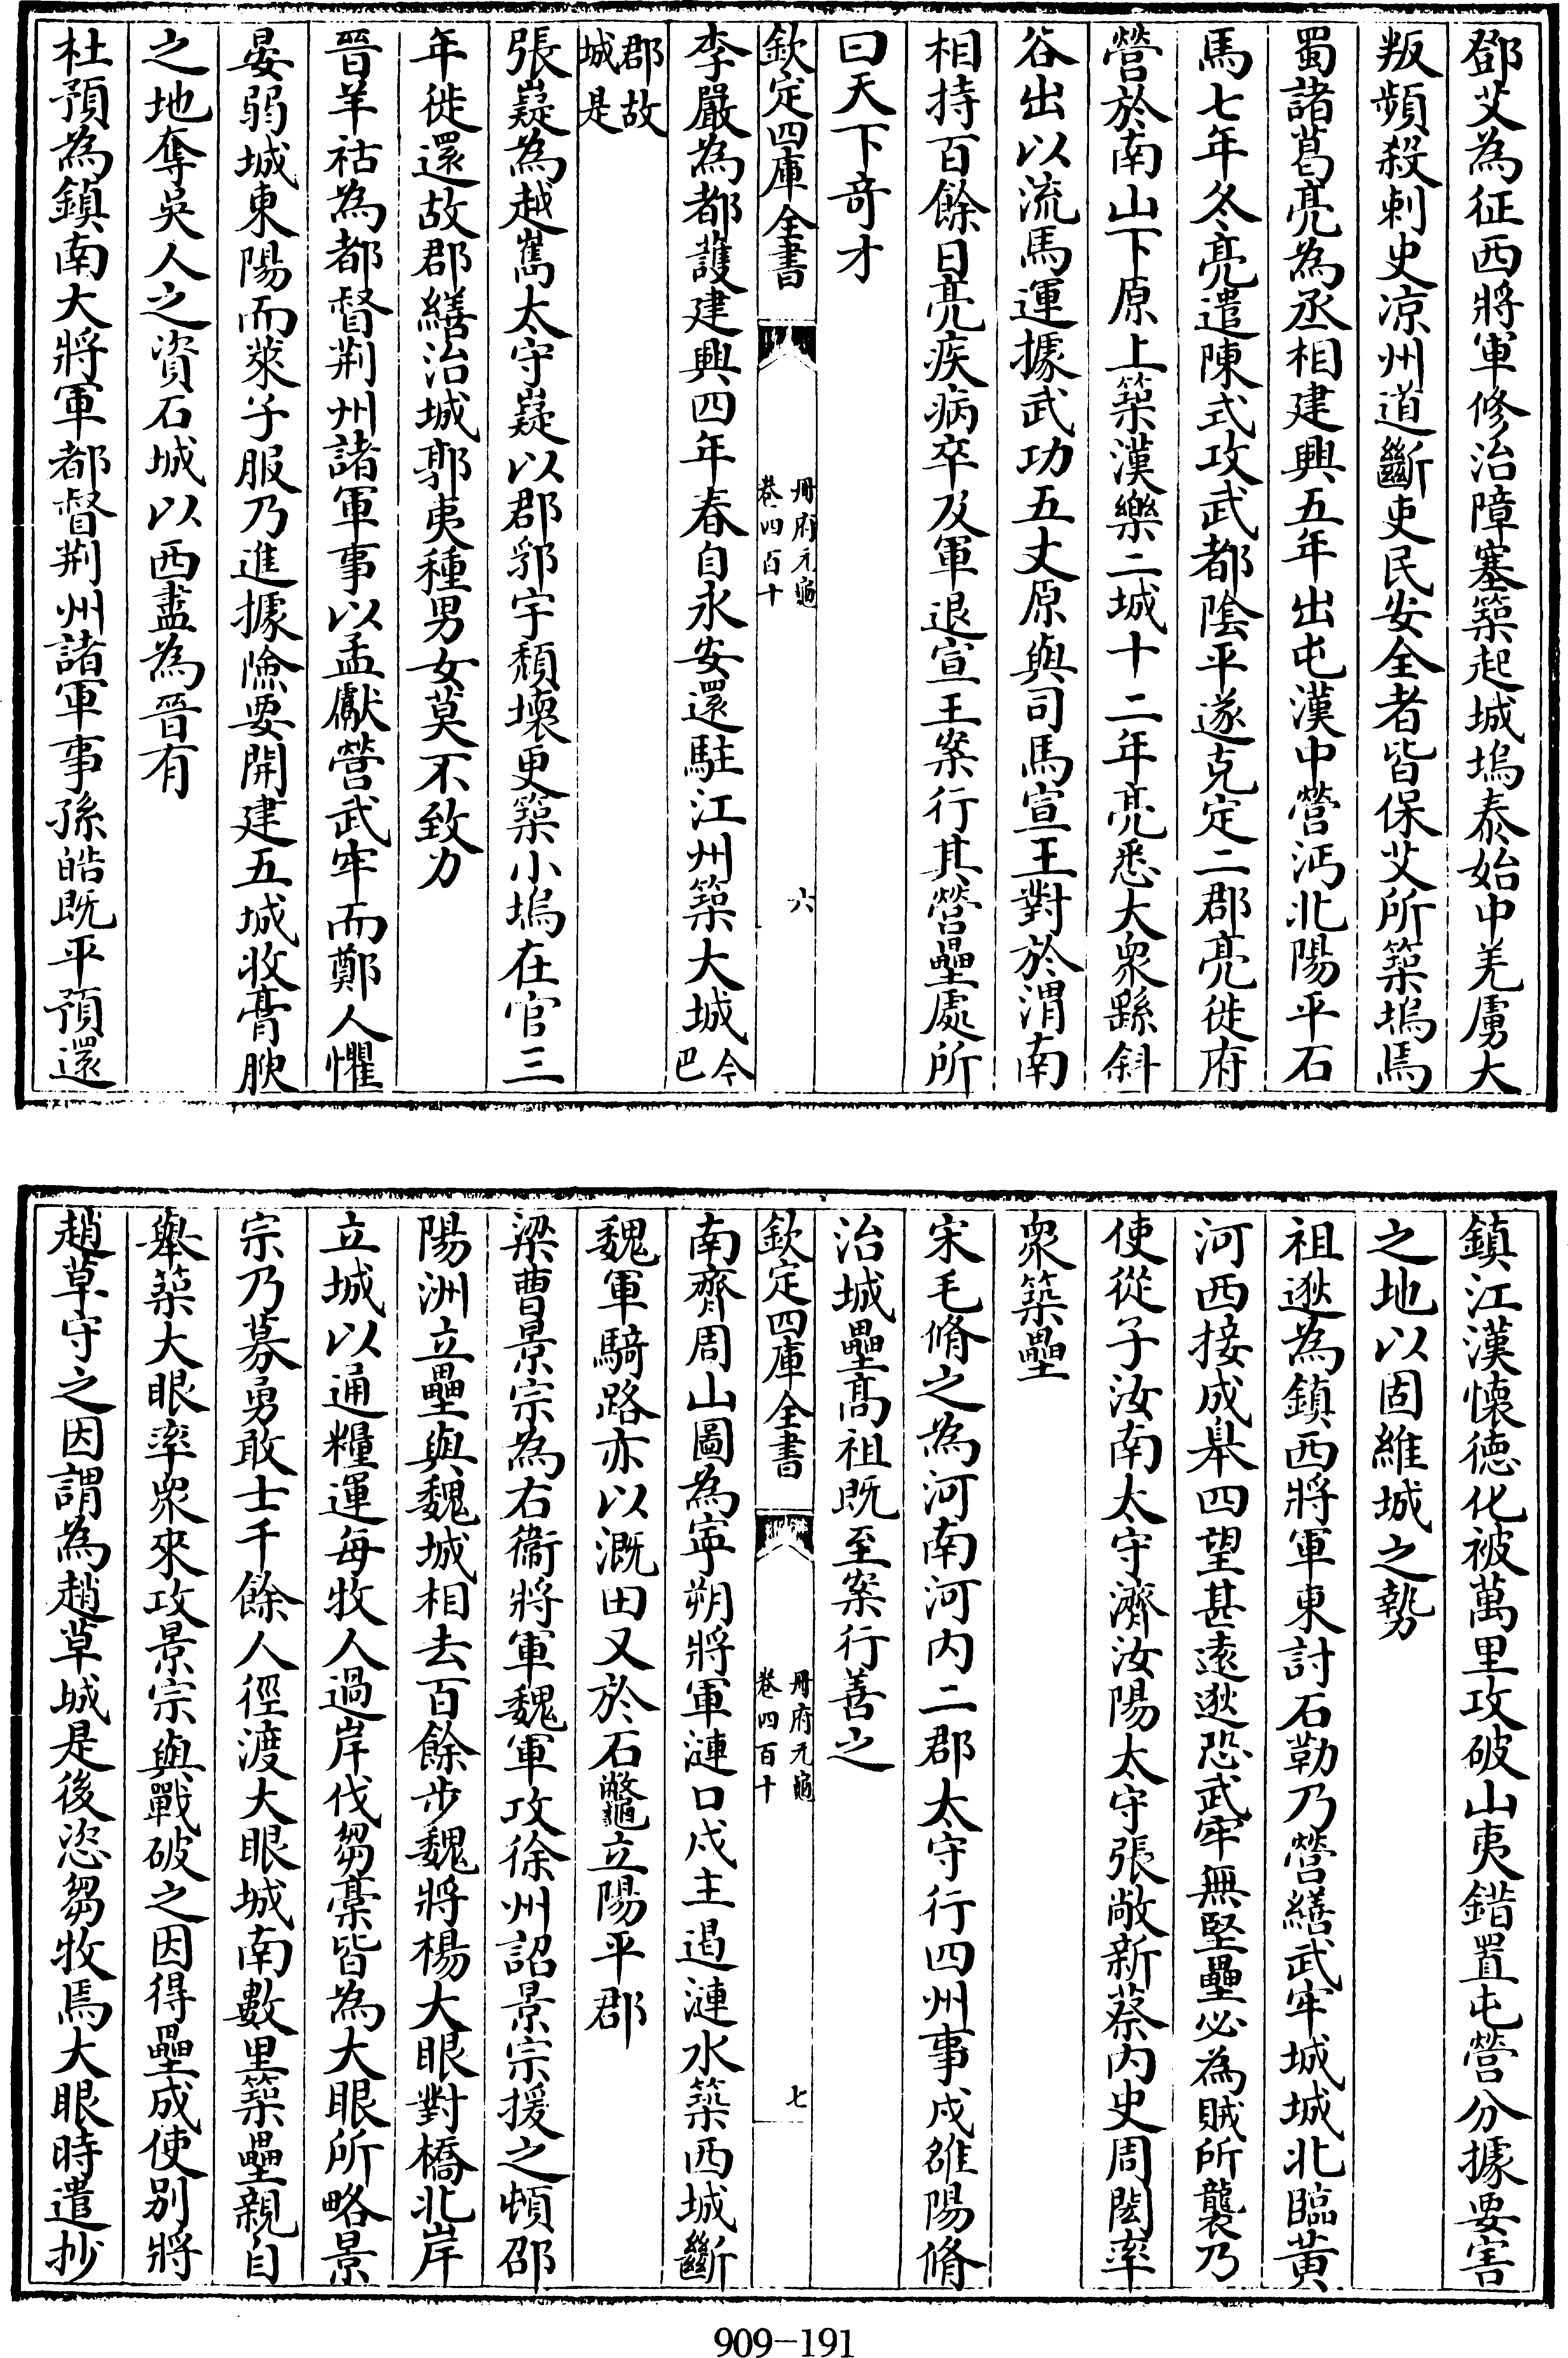 鄧艾為征西將軍修治障塞築起城塢泰始中羌虜大
叛頻殺刺史涼州道斷吏民安全者皆保艾所築塢焉
蜀諸葛亮為丞相建興五年出屯漢中營沔北陽平石
馬七年冬亮遣陳式攻武都陰平遂克定二郡亮徙府
營於南山下原上築漢樂二城十二年亮悉大衆繇斜
谷出以流馬運據武功五丈原與司馬宣王對於渭南
相持百餘日亮疾病卒及軍退宣王案行其營壘處所
曰天下奇才
欽定四庫全書
冊府元龜
卷四百十
六
李嚴為都護建興四年春自永安還駐江州築大城今巴
郡故城是
張嶷為越嶲太守嶷以郡郛宇頽壞更築小塢在官三
年徙還故郡繕治城郭夷種男女莫不致力
晉羊祜為都督荆州諸軍事以孟獻營武牢而鄭人懼
晏弱城東陽而萊子服乃進據險要開建五城收膏腴
之地奪吳人之資石城以西盡為晉有
杜預為鎮南大將軍都督荆州諸軍事孫皓既平預還
鎮江漢懷德化被萬里攻破山夷錯置屯營分據要害
之地以固維城之勢
祖逖為鎮西將軍東討石勒乃營繕武牢城城北臨黃
河西接成皋四望甚遠逖恐武牢無堅壘必為賊所襲乃
使從子汝南太守濟汝陽太守張敞新蔡内史周閎率
衆築壘
宋毛脩之為河南河内二郡太守行四州事戍雒陽脩
治城壘高祖既至案行善之
欽定四庫全書
冊府元龜
卷四百十
七
南齊周山圖為寧朔將軍漣口戍主遏漣水築西城斷
魏軍騎路亦以溉田又於石鼈立陽平郡
梁曹景宗為右衞將軍魏軍攻徐州詔景宗援之頓邵
陽洲立壘與魏城相去百餘步魏將楊大眼對橋北岸
立城以通糧運每牧人過岸伐芻藁皆為大眼所略景
宗乃募勇敢士千餘人徑渡大眼城南數里築壘親自
舉築大眼率衆來攻景宗與戰破之因得壘成使别將
趙草守之因謂為趙草城是後恣芻牧焉大眼時遣抄
909-191